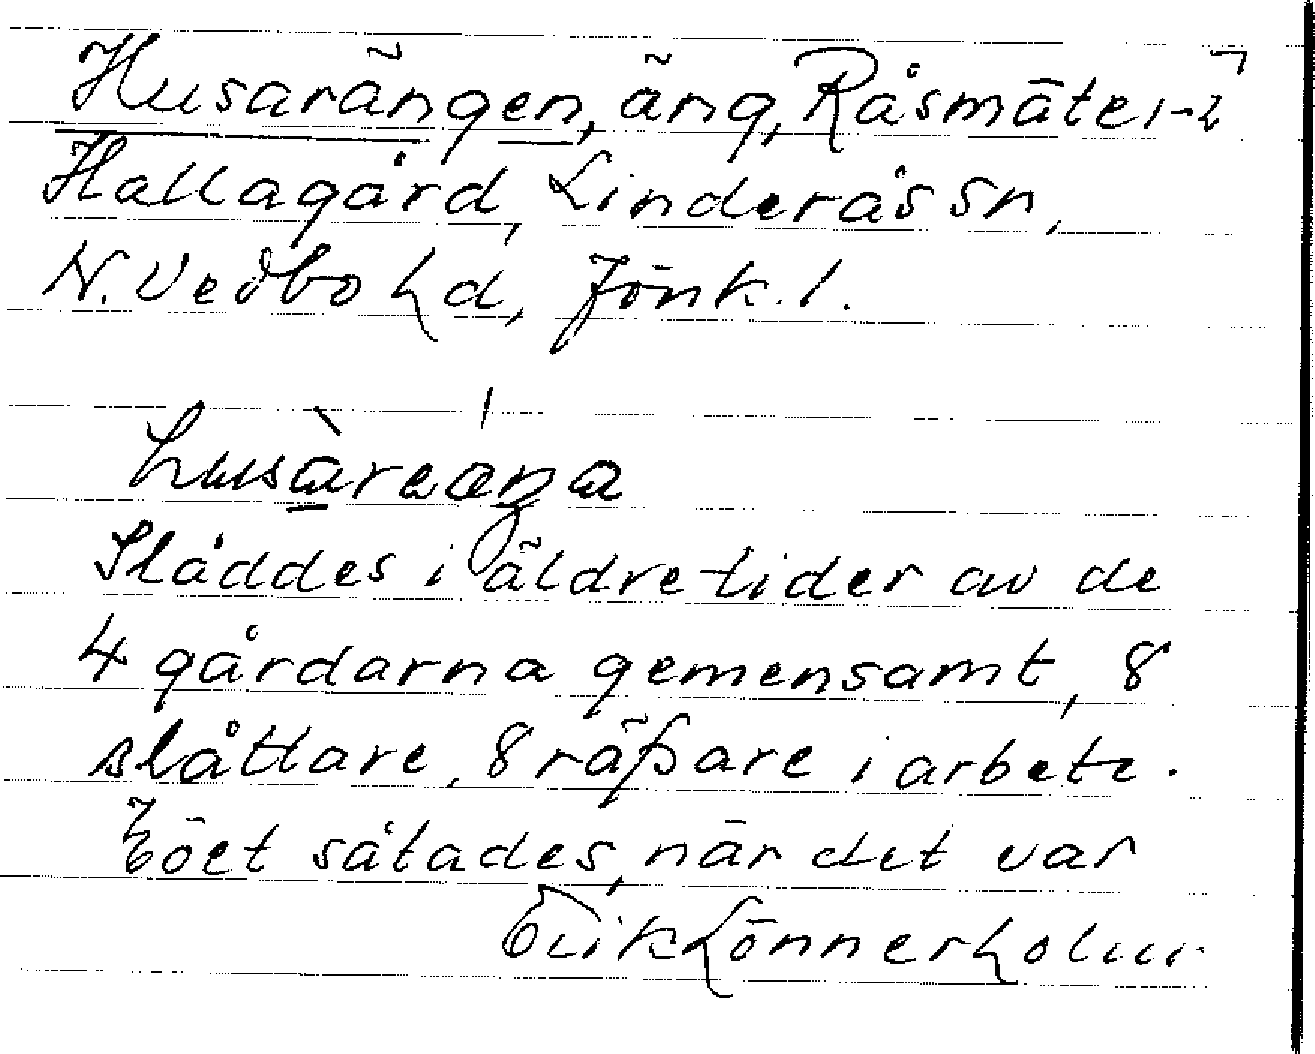 Husarängen, äng, Råsmäte 1-2
Hallagård, Linderås sn,
N. Vedbo hd, Jönk. l.
husàraáŋa
Slåddes i äldre tider av de
4 gårdarna gemensamt, 8
slåttare, 8 räfsare i arbete.
Höet såtades, när det var
Erik Lönnerholm